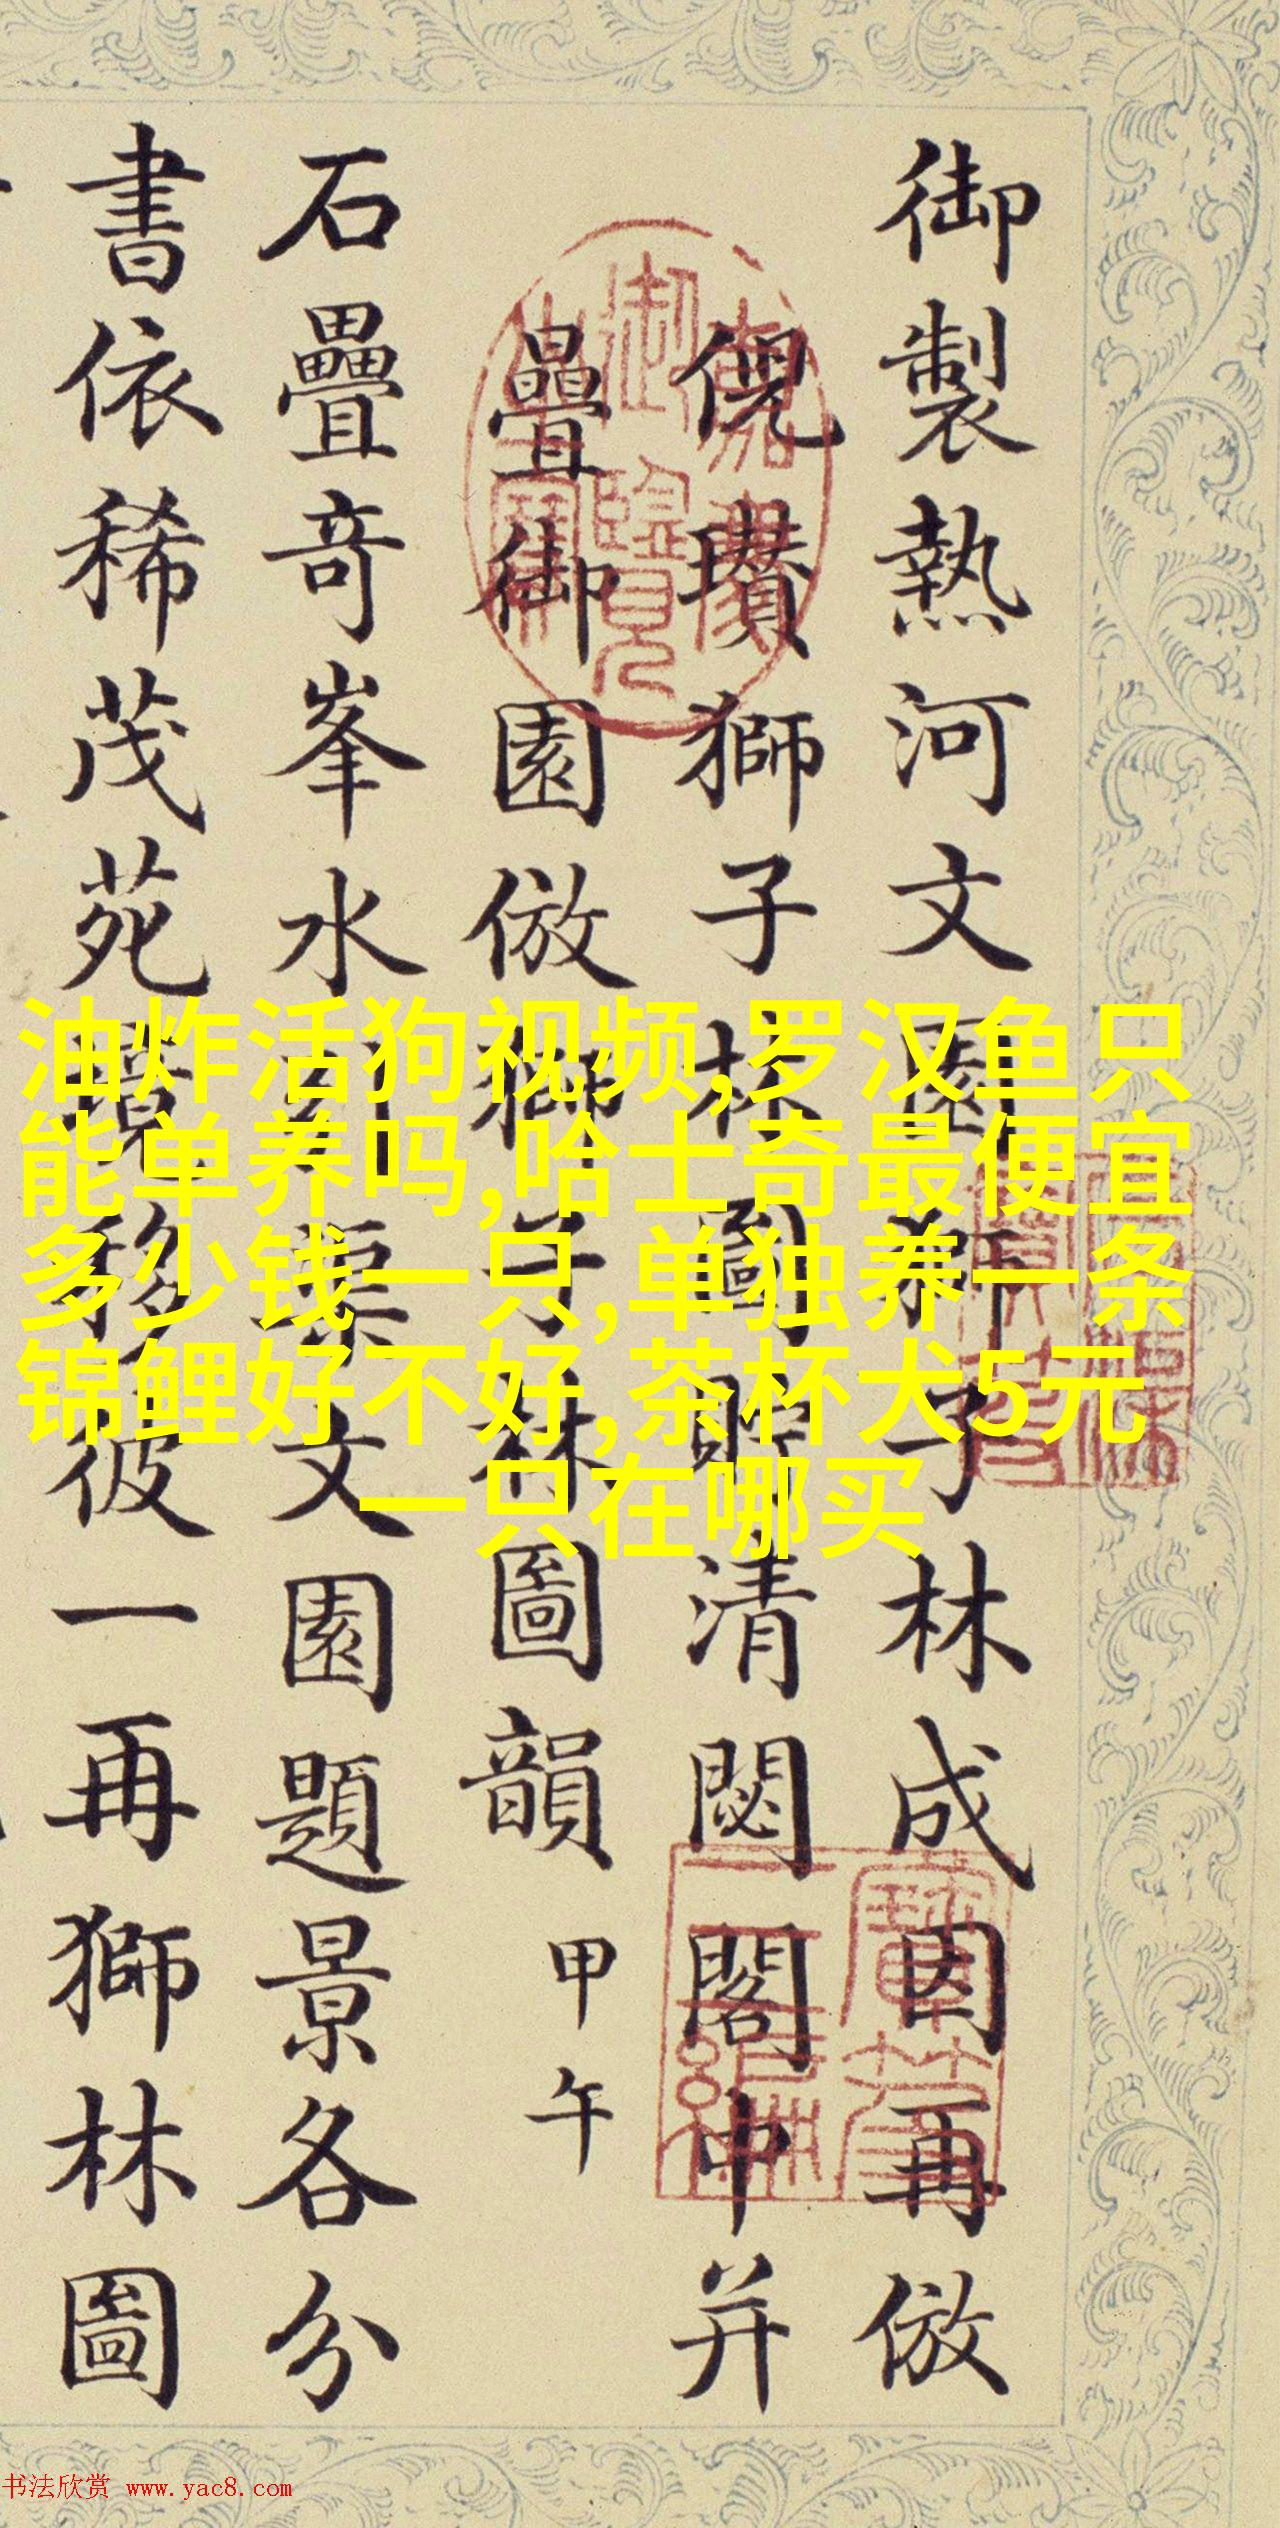 御製熱河文園獅子林成因再倣
倪瓚獅子林圖貯清閟閣中并
疊御園倣獅子林圖韻甲午
石疊奇峯水文園題景各分
書依稀茂苑移彼一再獅林圖
油炸活狗视频,罗汉鱼只
能单养吗,哈士奇最便宜
多少钱一只,单独养一条
锦鲤好不好,茶杯犬5元
一只在哪买
书法欣赏 www.yac8.com